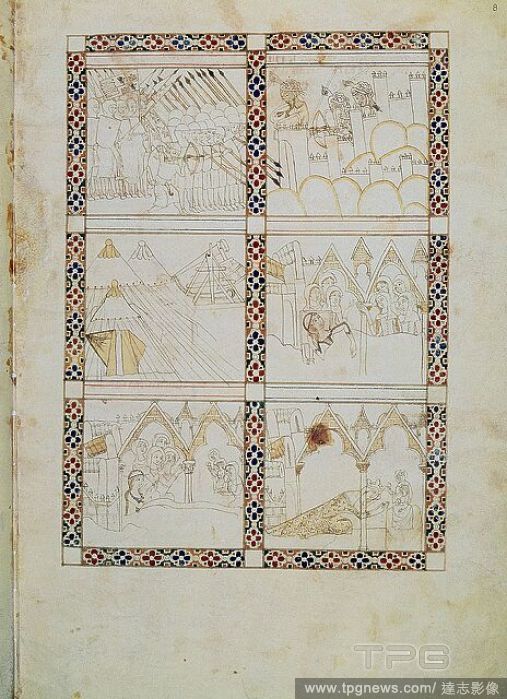 8
TPG
www.tpgnews.com/ 達志影像